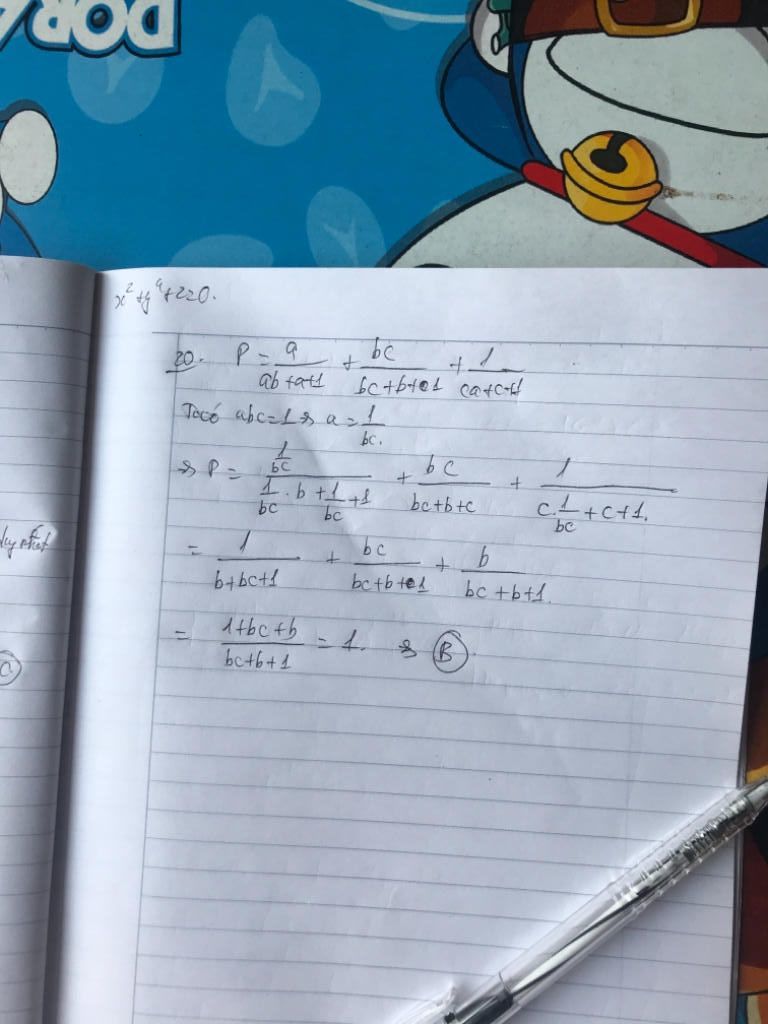 DORA
x² + y⁴ + 2 ≥ 0.
20. P = a/(ab+a+1) + bc/(bc+b+1) + 1/(ca+c+1)
Ta có abc = 1 => a = 1/bc.
=> P = (1/bc)/(1/bc · b + 1/bc + 1) + bc/(bc+b+c) + 1/(c · 1/bc + c + 1).
= 1/(b+bc+1) + bc/(bc+b+1) + b/(bc+b+1).
= (1+bc+b)/(bc+b+1) = 1. => B.
C